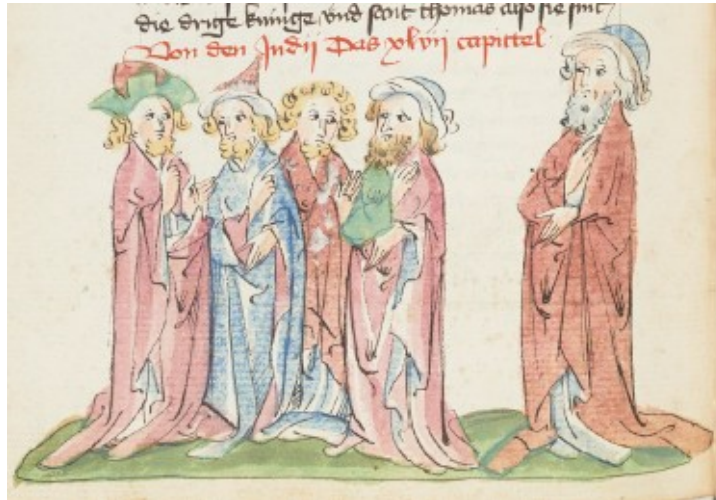 die drige kunige vnd sent thomas also sie sint
Von den Judij Das xlvij cappittel